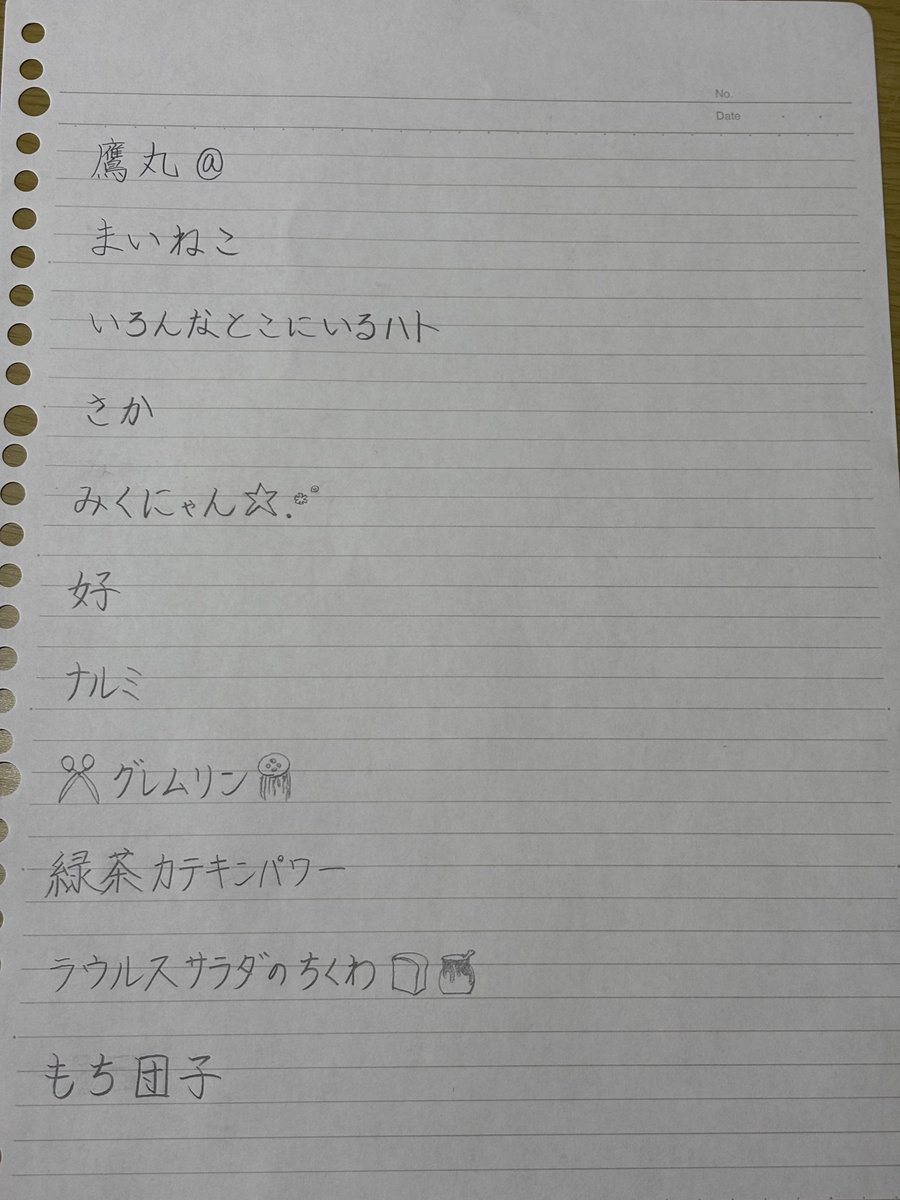 No.
Date
鷹丸@
まいねこ
いろんなとこにいるハト
さか
みくにゃん☆.*°
好
ナルミ
グレムリン
緑茶カテキンパワー
ラウルスサラダのちくわ
もち団子